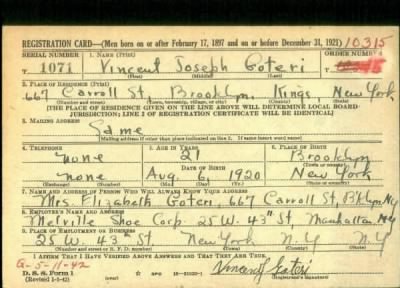 REGISTRATION CARD—(Men born on or after February 17, 1897 and on or before December 31, 1921) 10315
SERIAL NUMBER 1. NAME (Print) ORDER NUMBER
T 1071 Vincent Joseph Goteri T
(First) (Middle) (Last)
2. PLACE OF RESIDENCE (Print)
667 Carroll St, Brooklyn, Kings, New York
(Number and street) (Town, township, village, or city) (County) (State)
[THE PLACE OF RESIDENCE GIVEN ON THE LINE ABOVE WILL DETERMINE LOCAL BOARD
JURISDICTION; LINE 2 OF REGISTRATION CERTIFICATE WILL BE IDENTICAL]
3. MAILING ADDRESS
Same
[Mailing address if other than place indicated on line 2. If same insert word same]
4. TELEPHONE 5. AGE IN YEARS 6. PLACE OF BIRTH
none 21 Brooklyn
DATE OF BIRTH
none Aug. 6, 1920 New York
7. NAME AND ADDRESS OF PERSON WHO WILL ALWAYS KNOW YOUR ADDRESS
Mrs. Elizabeth Goteri, 667 Carroll St, Bklyn NY
8. EMPLOYER'S NAME AND ADDRESS
Melville Shoe Corp. 25 W. 43rd St Manhattan NY
9. PLACE OF EMPLOYMENT OR BUSINESS
25 W. 43rd St New York NY N.Y
(Number and street or R. F. D. number) (Town) (County) (State)
I AFFIRM THAT I HAVE VERIFIED ABOVE ANSWERS AND THAT THEY ARE TRUE.
G-5-11-42
D. S. S. Form 1 Vincent J Goteri
(Revised 1-1-42) (Registrant's signature)